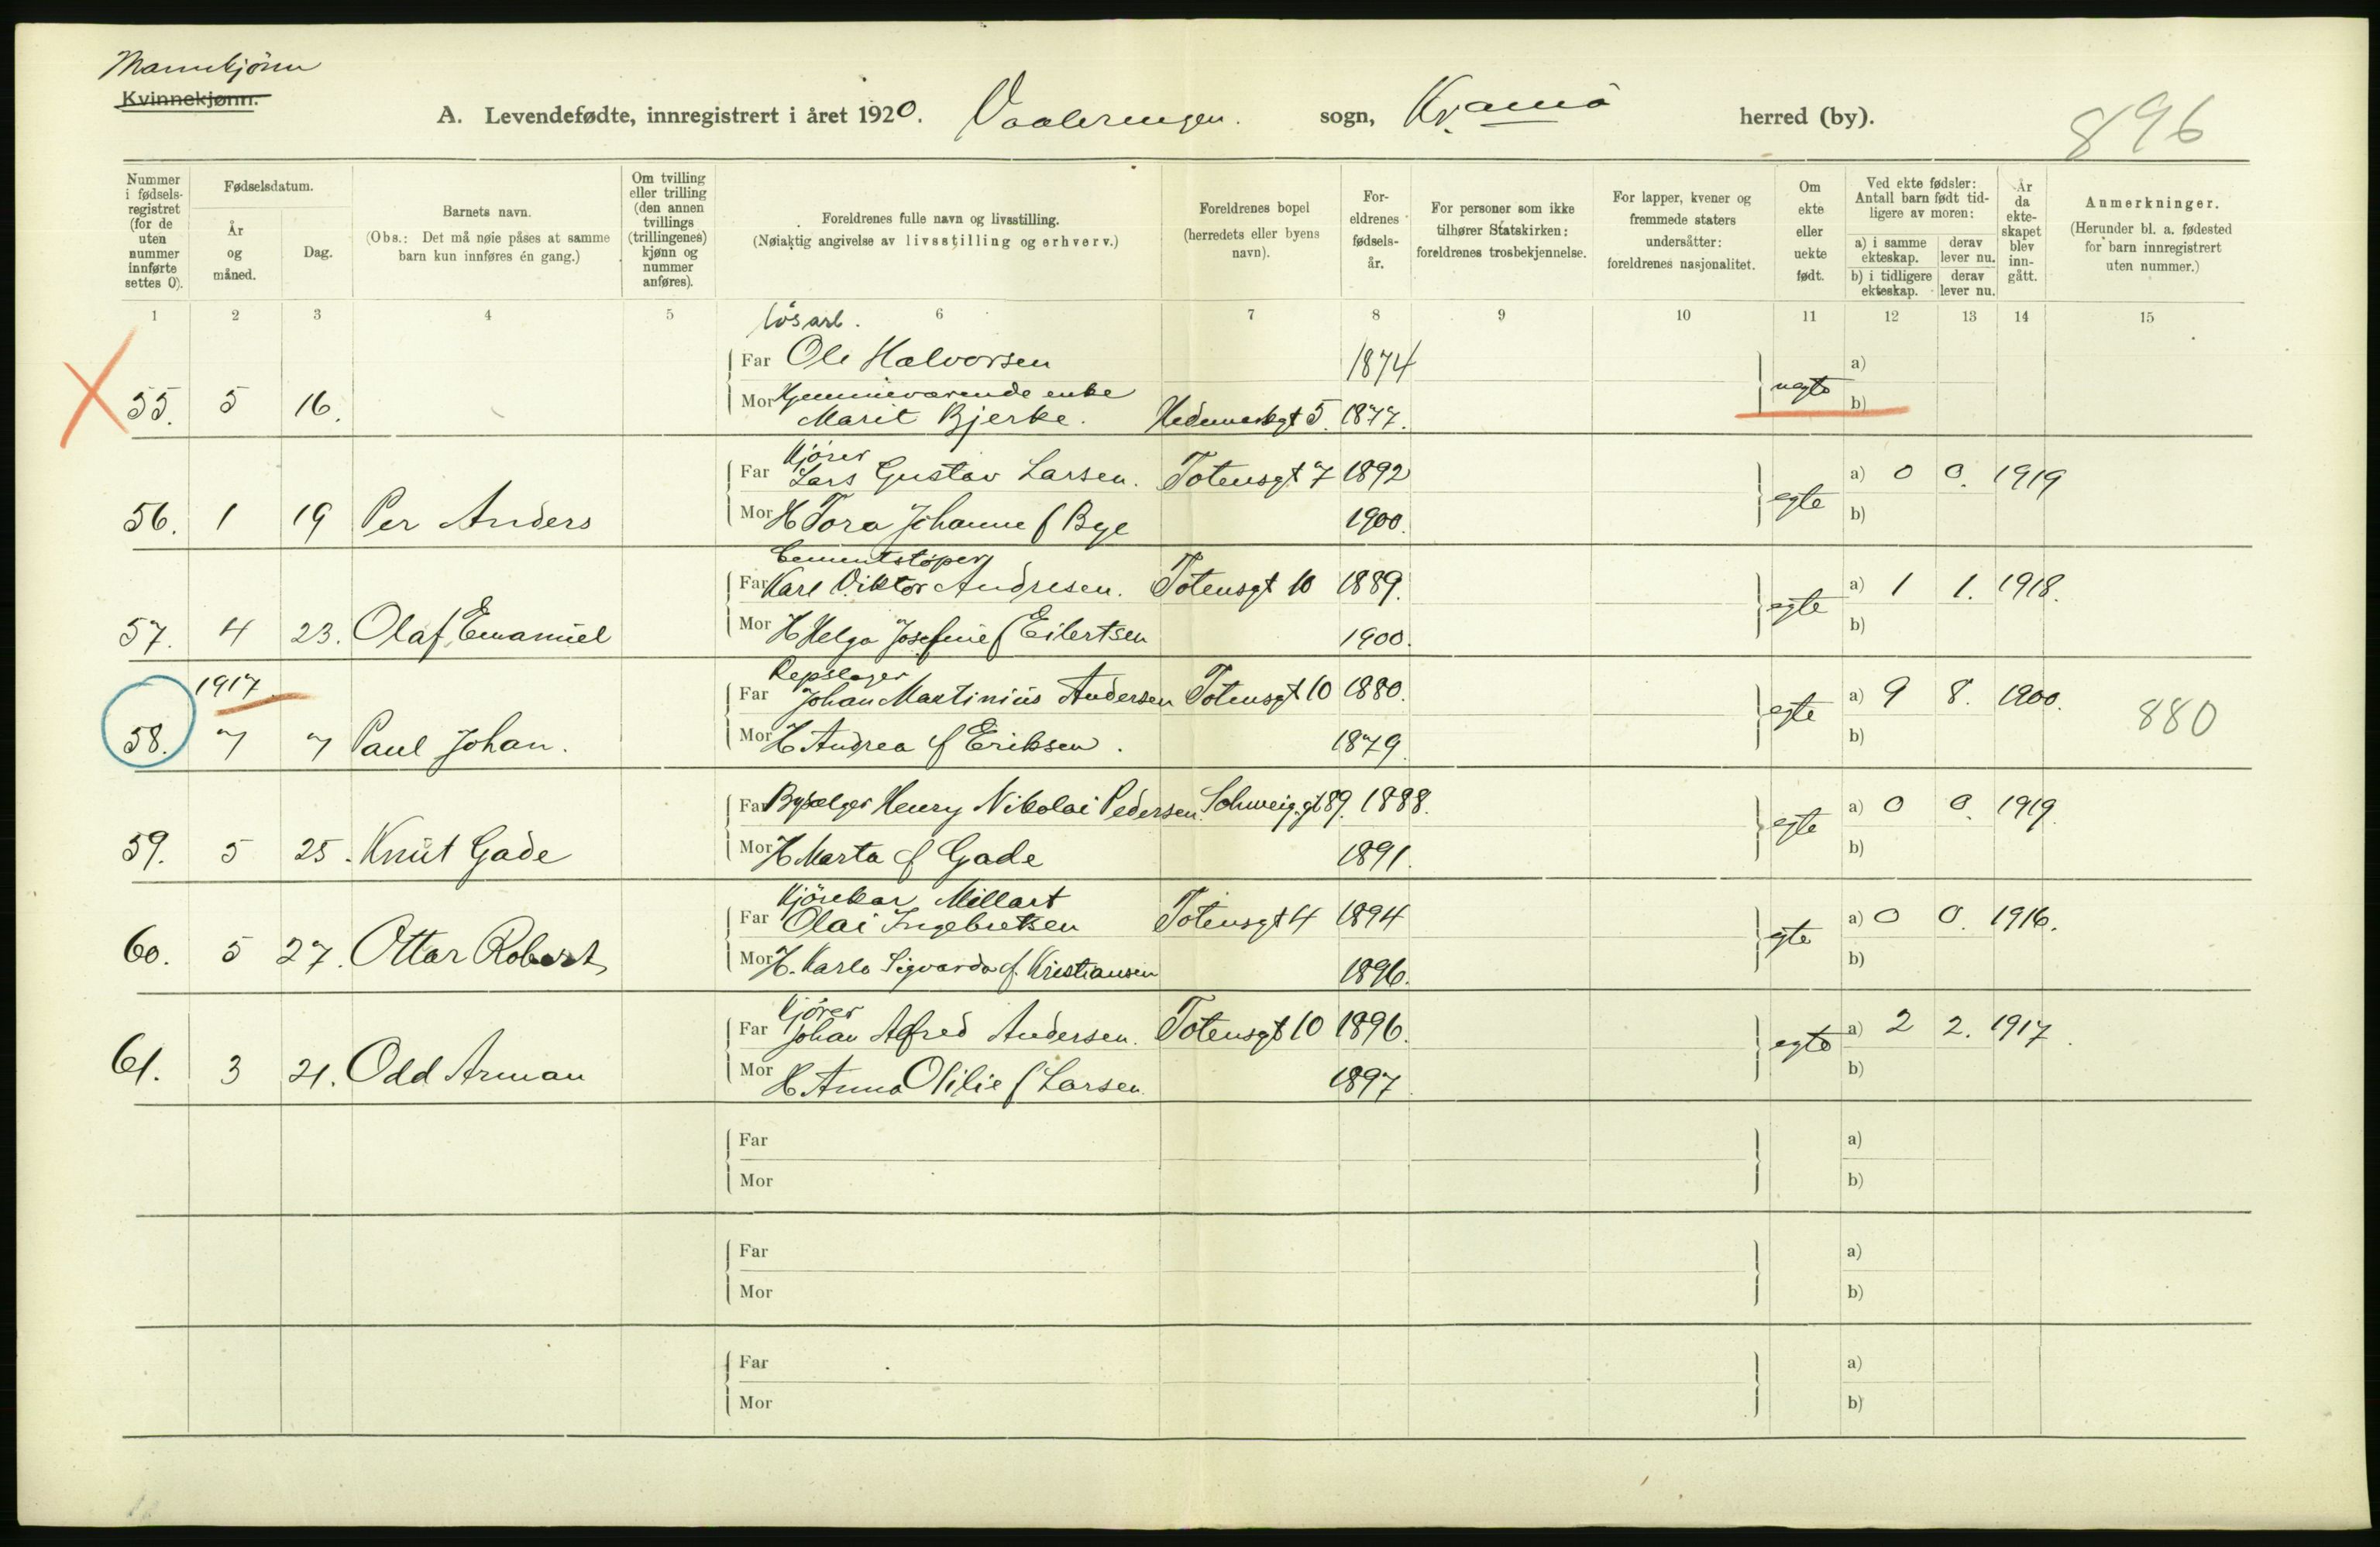 Mannkjønn
Kvinnekjønn.
A. Levendefødte, innregistrert i året 1920. Vaalerengen. sogn, Kr.ania herred (by). 896
Nummer i fødsels-registret (for de uten nummer innførte settes 0).
Fødselsdatum.
År og måned.
Dag.
Barnets navn.
(Obs.: Det må nøie påses at samme barn kun innføres én gang.)
Om tvilling eller trilling (den annen tvillings (trillingenes) kjønn og nummer anføres).
Foreldrenes fulle navn og livsstilling.
(Nøiaktig angivelse av livsstilling og erhverv.)
Foreldrenes bopel (herredets eller byens navn).
For-eldrenes fødsels-år.
For personer som ikke tilhører Statskirken: foreldrenes trosbekjennelse.
For lapper, kvener og fremmede staters undersåtter: foreldrenes nasjonalitet.
Om ekte eller uekte født.
Ved ekte fødsler: Antall barn født tid-ligere av moren:
a) i samme ekteskap. derav lever nu.
b) i tidligere ekteskap. derav lever nu.
År da ekte-skapet blev inn-gått.
Anmerkninger.
(Herunder bl. a. fødested for barn innregistrert uten nummer.)
1 2 3 4 5 6 7 8 9 10 11 12 13 14 15
løsarb.
Far Ole Halvorsen 1874 a)
Hjemmeværende enke
55. 5 16. Mor Marit Bjerke. Hedemarksgt 5. 1877. uegte b)
Kjører
Far Lars Gustav Larsen. Totensgt 7 1892 a) 0 0. 1919
56. 1 19 Per Anders Mor H Tora Johanne f Bye 1900. egte b)
Cementstøper
Far Karl Viktor Andresen. Totensgt 10 1889. a) 1 1. 1918.
57. 4 23. Olaf Emanuel Mor H Helga Josefine f Eilertsen 1900. egte b)
1917. Repslager
Far Johan Martinius Andersen Totensgt 10 1880. a) 9 8. 1900.
58. 7 7 Paul Johan. Mor H Andrea f Eriksen. 1879. egte b) 880
Far Bysælger Henry Nikolai Pedersen. Schweig.gt 89. 1888. a) 0 0. 1919.
59. 5 25. Knut Gade Mor H Marta f Gade 1891. egte b)
Kjørekar Millart
Far Olai Ingebretsen Totensgt 4 1894 a) 0 0. 1916.
60. 5 27. Ottar Robert Mor H. Karla Sigvarda f. Kristiansen 1896. egte b)
Kjører
Far Johan Alfred Andersen. Totensgt 10 1896. a) 2 2. 1917.
61. 3 21. Odd Arman Mor H Anna Otilie f Larsen. 1897. egte b)
Far a)
Mor b)
Far a)
Mor b)
Far a)
Mor b)